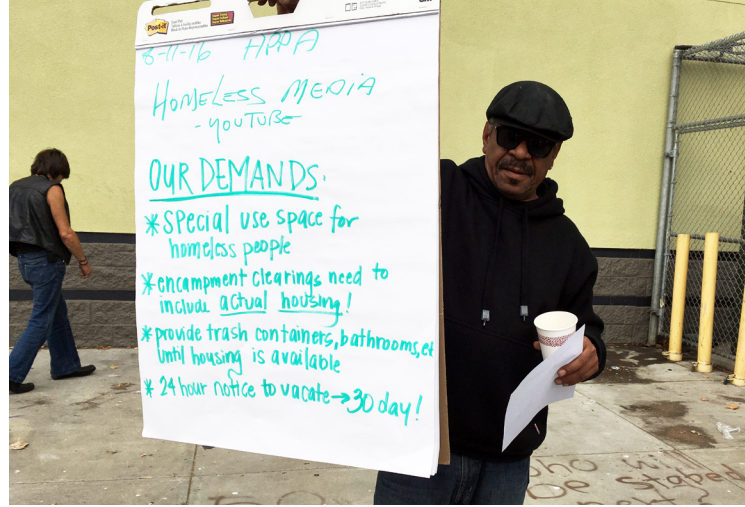 Post-it
8-11-16 APPA
HOMELESS MEDIA
- YOUTUBE
OUR DEMANDS:
* SPECIAL USE SPACE for
homeless people
* encampment clearings need to
include actual housing!
* provide trash containers, bathrooms, et
until housing is available
* 24 hour notice to vacate → 30 day!
who will
be stabed